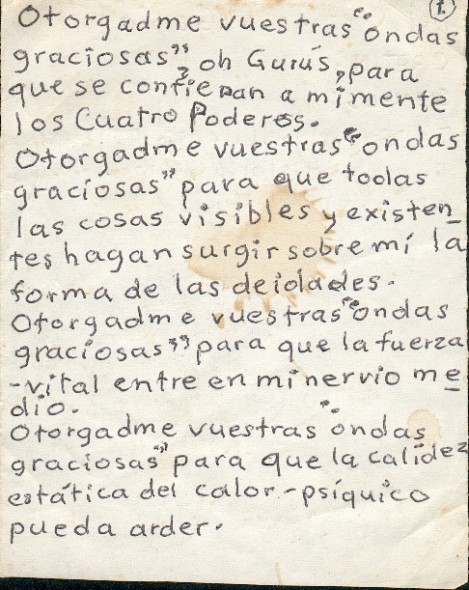 1.
Otorgadme vuestras "ondas
graciosas", oh Gurús, para
que se confieran a mi mente
los Cuatro Poderes.
Otorgadme vuestras "ondas
graciosas" para que todas
las cosas visibles y existen-
tes hagan surgir sobre mí la
forma de las deidades.
Otorgadme vuestras "ondas
graciosas" para que la fuerza
-vital entre en mi nervio me-
dio.
Otorgadme vuestras "ondas
graciosas" para que la calidez
estática del calor-psíquico
pueda arder.